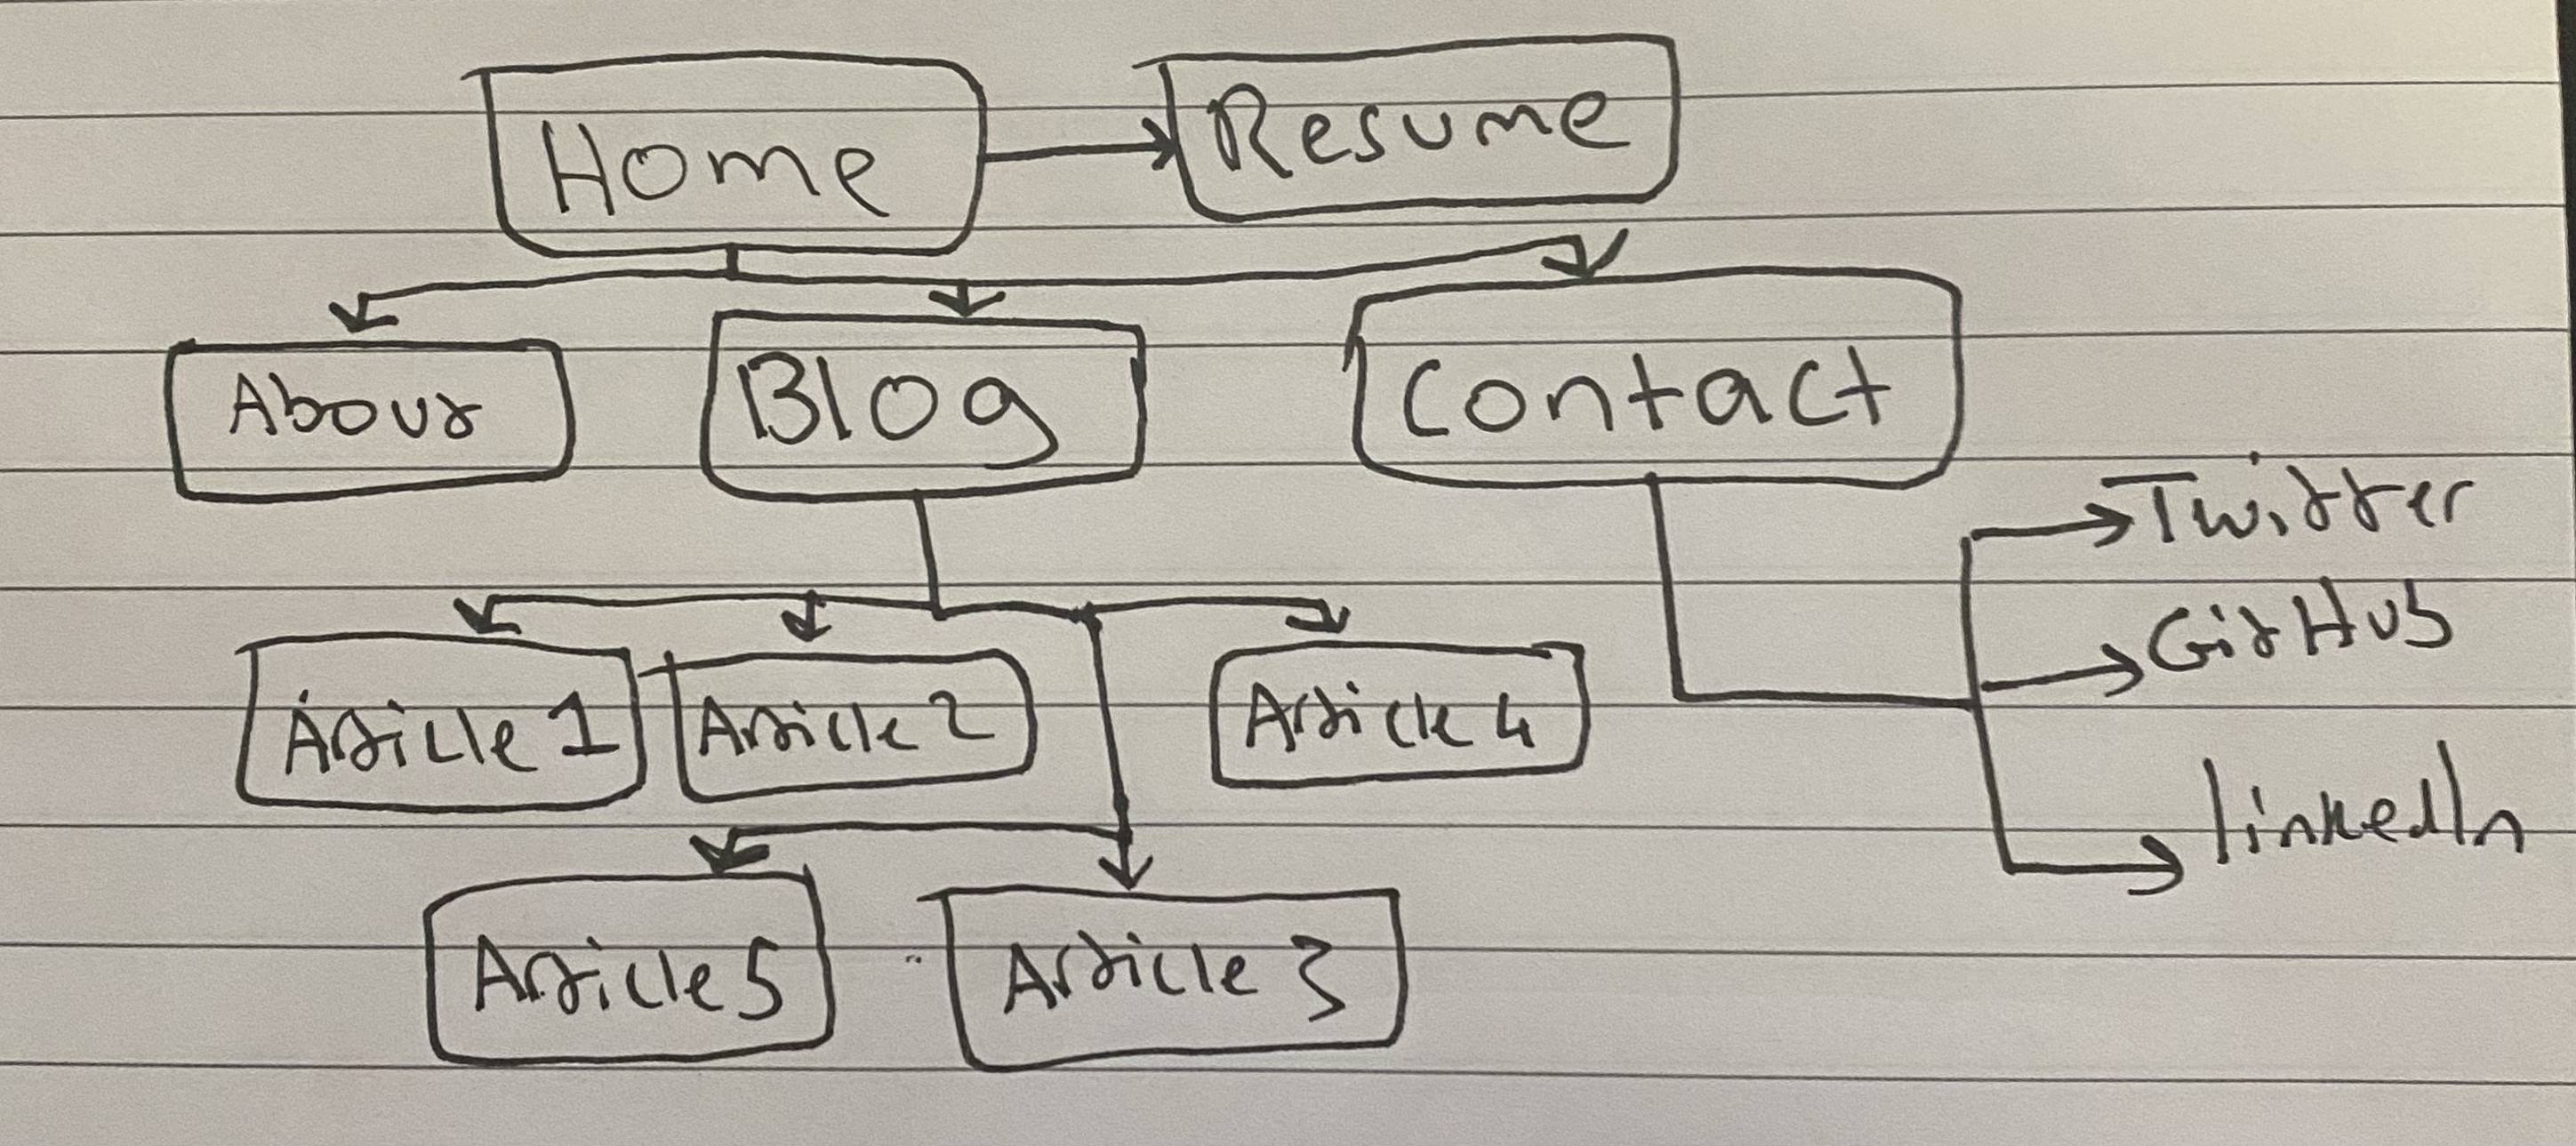 Home
Resume
About
Blog
Contact
Twitter
GitHub
Article 1
Article 2
Article 4
linkedIn
Article 5
Article 3